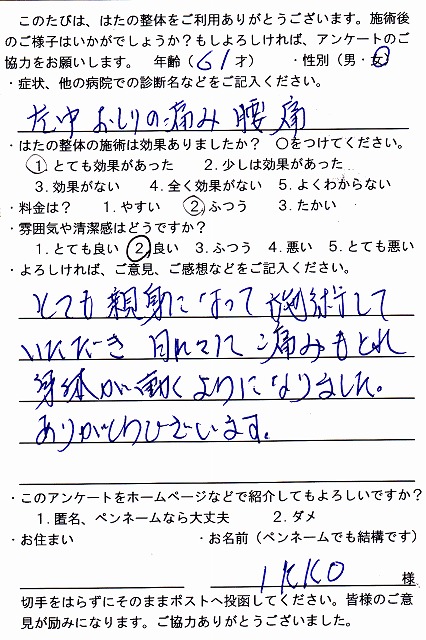 このたびは、はたの整体をご利用ありがとうございます。施術後
のご様子はいかがでしょうか？もしよろしければ、アンケートのご
協力をお願いします。 年齢（61才） ・性別（男・女）
・症状、他の病院での診断名などをご記入ください。
左中おしりの痛み 腰痛
・はたの整体の施術は効果ありましたか？ ○をつけてください。
1．とても効果があった 2．少しは効果があった
3．効果がない 4．全く効果がない 5．よくわからない
・料金は？ 1．やすい 2．ふつう 3．たかい
・雰囲気や清潔感はどうですか？
1．とても良い 2．良い 3．ふつう 4．悪い 5．とても悪い
・よろしければ、ご意見、ご感想などをご記入ください。
とても親身になって施術して
いただき 日れてに 痛みもとれ
身体が動くようになりました。
ありがとうございます。
・このアンケートをホームページなどで紹介してもよろしいですか？
1．匿名、ペンネームなら大丈夫 2．ダメ
・お住まい ・お名前（ペンネームでも結構です）
IKKO 様
切手をはらずにそのままポストへ投函してください。皆様のご意
見が励みになります。ご協力ありがとうございました。